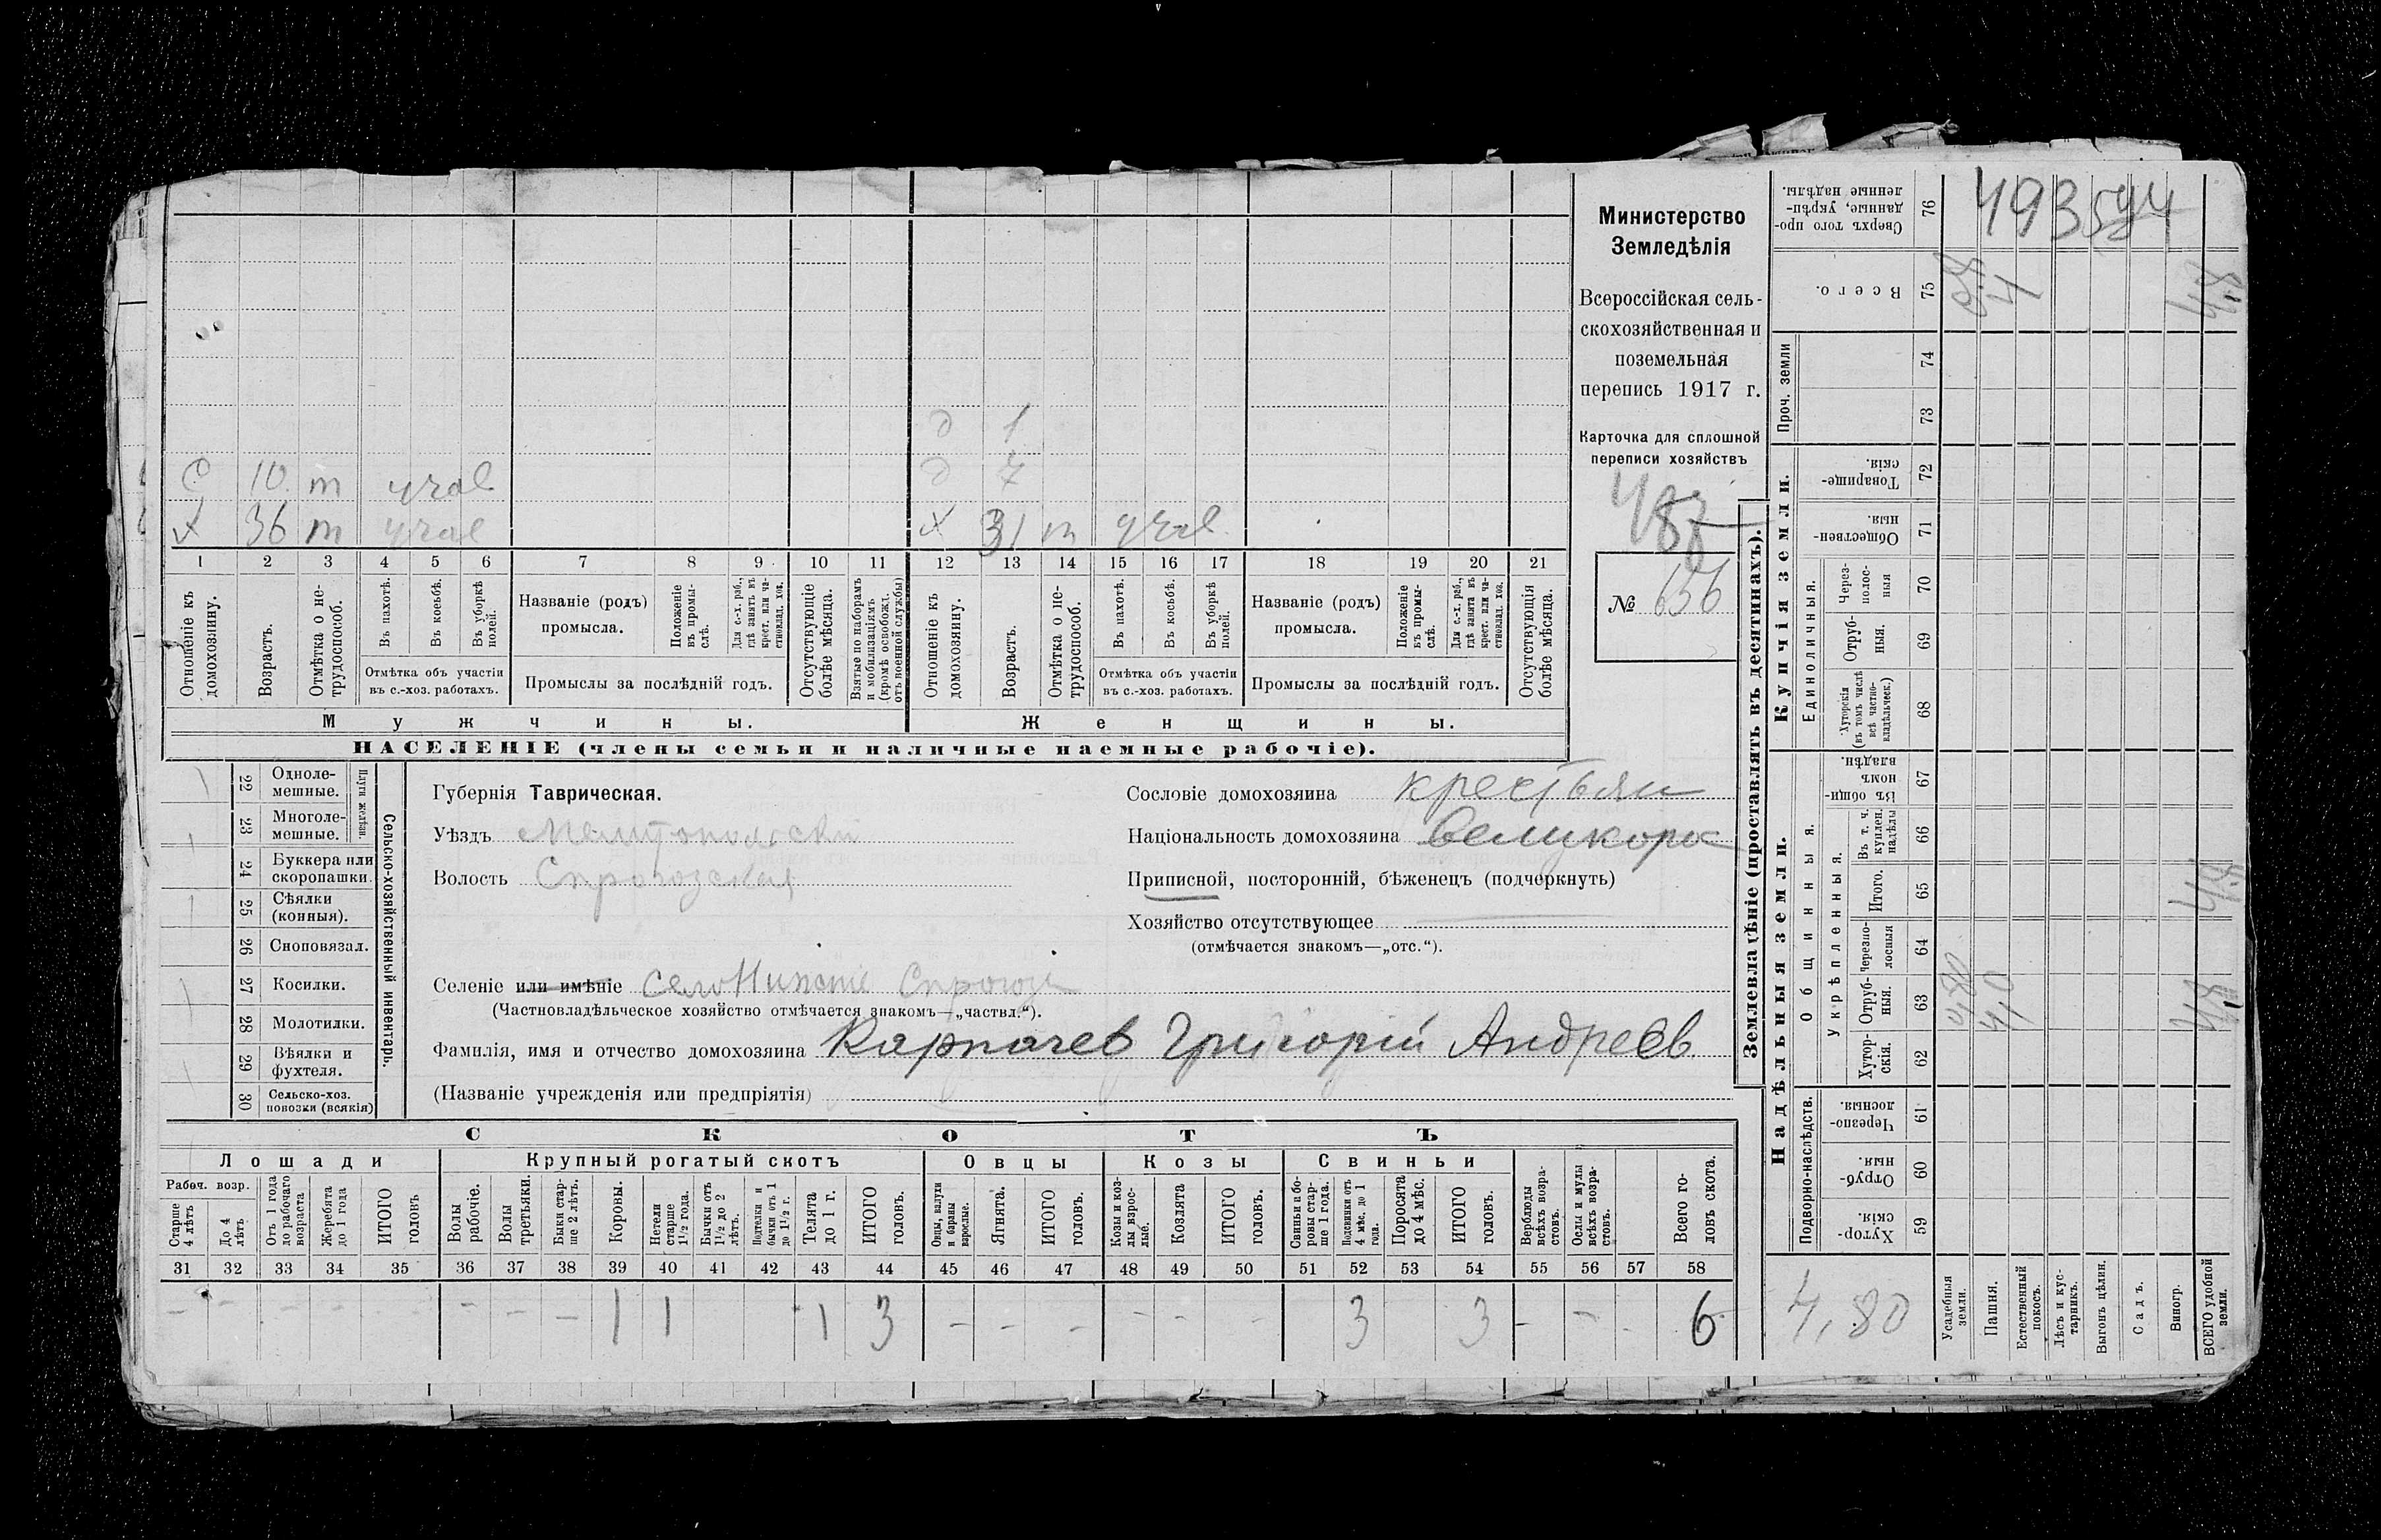 Министерство
Земледѣлія
Всероссійская сель-
скохозяйственная и
поземельная
перепись 1917 г.
Карточка для сплошной
переписи хозяйствъ
487
№ 656
д 1
С 10 т
д 7
х 36 т
х 31 т
1 2 3 4 5 6 7 8 9 10 11 12 13 14 15 16 17 18 19 20 21
Отношеніе къ домохозяину.
Возрастъ.
Отмѣтка о не-трудоспособ.
Въ пахотѣ.
Въ косьбѣ.
Въ уборкѣ полей.
Отмѣтка объ участіи
въ с.-хоз. работахъ.
Названіе (родъ)
промысла.
Положеніе въ промы-слѣ.
Для с.-х. раб., гдѣ занятъ въ крест. или ча-стновлад. хоз.
Промыслы за послѣдній годъ.
Отсутствующіе болѣе мѣсяца.
Взятые по наборамъ и мобилизаціямъ (кромѣ освобожд. отъ военной службы)
Отношеніе къ домохозяину.
Возрастъ.
Отмѣтка о не-трудоспособ.
Въ пахотѣ.
Въ косьбѣ.
Въ уборкѣ полей.
Отмѣтка объ участіи
въ с.-хоз. работахъ.
Названіе (родъ)
промысла.
Положеніе въ промы-слѣ.
Для с.-х. раб., гдѣ занята въ крест. или ча-стновлад. хоз.
Промыслы за послѣдній годъ.
Отсутствующія болѣе мѣсяца.
Мужчины.
Женщины.
НАСЕЛЕНІЕ (члены семьи и наличные наемные рабочіе).
22 Одноле-мешные.
23 Многоле-мешные.
Плуги желѣзн.
24 Буккера или скоропашки.
25 Сѣялки (конныя).
26 Сноповязал.
27 Косилки.
28 Молотилки.
29 Вѣялки и фухтеля.
30 Сельско-хоз. повозки (всякія)
Сельско-хозяйственный инвентарь.
Губернія Таврическая.
Уѣздъ Мелитопольски
Волость
Селеніе или имѣніе село Нижніе
(Частновладѣльческое хозяйство отмѣчается знакомъ—„частвл.“).
Фамилія, имя и отчество домохозяина Карпачев Григорій Андреев
(Названіе учрежденія или предпріятія)
Сословіе домохозяина крестьян
Національность домохозяина великорос
Приписной, посторонній, бѣженецъ (подчеркнуть)
Хозяйство отсутствующее
(отмѣчается знакомъ—„отс.“).
СКОТЪ
Лошади
Крупный рогатый скотъ
Овцы
Козы
Свиньи
Рабоч. возр.
Старше 4 лѣтъ
До 4 лѣтъ
Отъ 1 года до рабочаго возраста
Жеребята до 1 года
ИТОГО головъ
Волы рабочіе.
Волы третьяки.
Быки стар-ше 2 лѣтъ.
Коровы.
Нетели старше 1½ года.
Бычки отъ 1½ до 2 лѣтъ.
Подтелки и бычки отъ 1 до 1½ г.
Телята до 1 г.
ИТОГО головъ.
Овцы, валухи и бараны взрослые.
Ягнята.
ИТОГО головъ.
Козы и коз-лы взрос-лые.
Козлята
ИТОГО головъ.
Свиньи и бо-ровы стар-ше 1 года.
Подсвинки отъ 4 мѣс. до 1 года.
Поросята до 4 мѣс.
ИТОГО головъ.
Верблюды всѣхъ возра-стовъ.
Ослы и мулы всѣхъ возра-стовъ.
Всего го-ловъ скота.
31 32 33 34 35 36 37 38 39 40 41 42 43 44 45 46 47 48 49 50 51 52 53 54 55 56 57 58
– – – – – – – 1 1 1 3 – – – – – – 3 3 – – – 6
Землевладѣніе (проставлять въ десятинахъ).
Купчія земли.
Надѣльныя земли.
Сверхъ того про-данные, укрѣп-ленные надѣлы. 76
493594
Всего. 75
Проч. земли
74
73
Товарище-скія. 72
Обществен-ныя. 71
Единоличныя.
Через-полос-ныя 70
Отруб-ныя. 69
Хуторскія (въ томъ числѣ всѣ частно-владѣльческ.) 68
Общинныя.
Въ общи-номъ владѣн. 67
Укрѣпленныя.
Въ т. ч. куплен. надѣлы 66
Итого. 65
Черезпо-лосныя 64
Отруб-ныя. 63
Хутор-скія. 62
Подворно-наслѣдств.
Черезпо-лосныя. 61
Отруб-ныя. 60
Хутор-скія. 59
4,80
Усадебныя земли.
Пашня.
Естественный покосъ.
Лѣсъ и кус-тарникъ.
Выгонъ цѣлин.
Садъ.
Виногр.
ВСЕГО удобной земли.